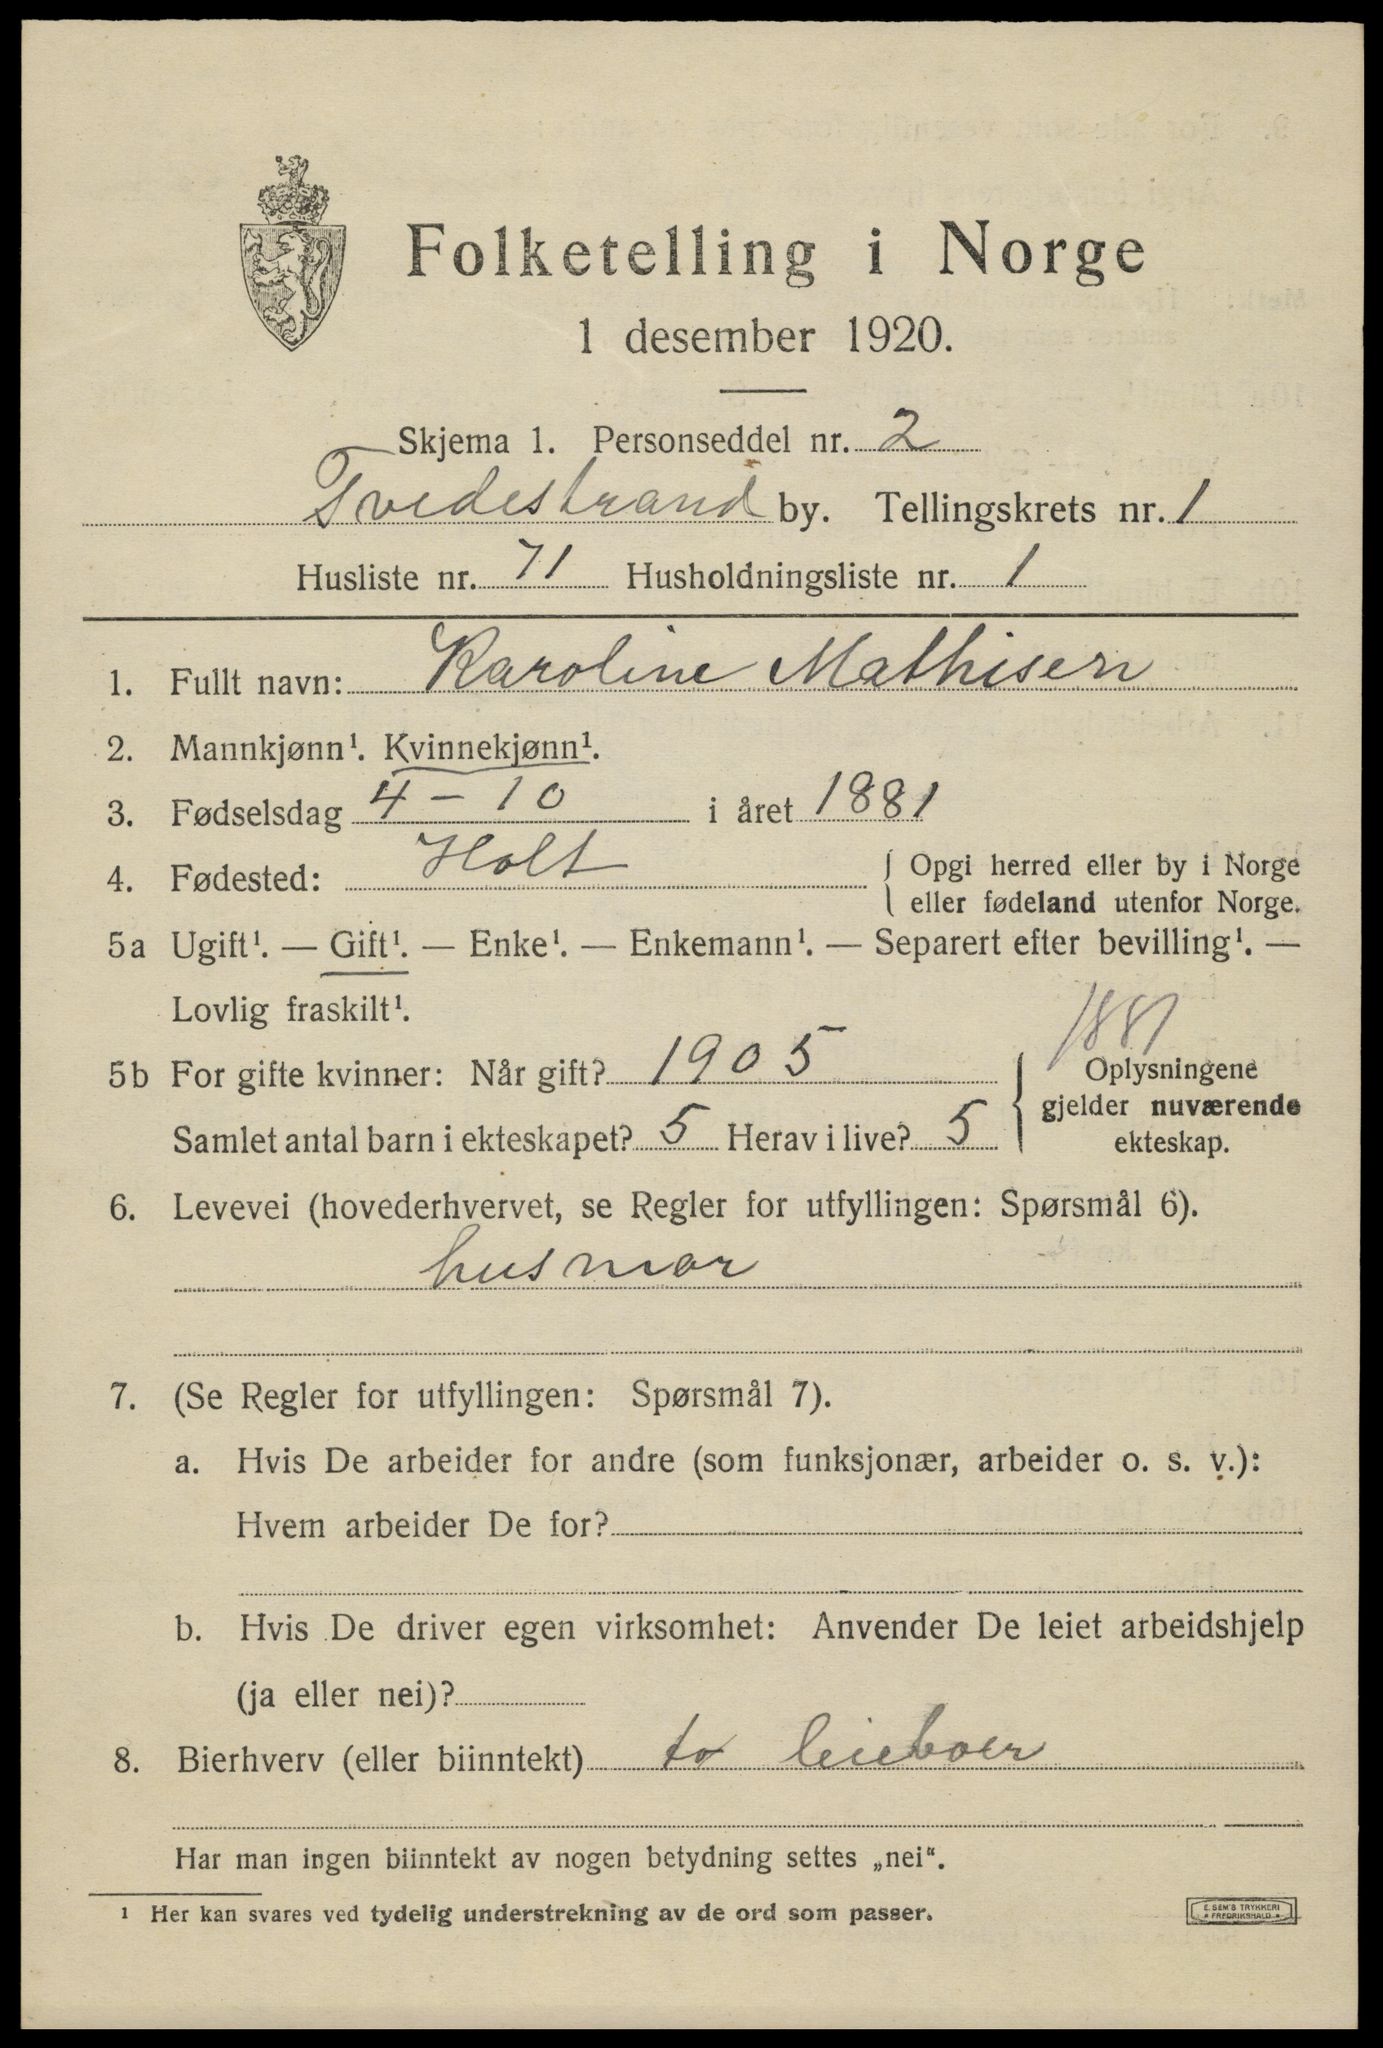 Folketelling i Norge
1 desember 1920.
Skjema 1. Personseddel nr. 2
Tvedestrand by. Tellingskrets nr. 1
Husliste nr. 71 Husholdningsliste nr. 1
1. Fullt navn: Karoline Mathisen
2. Mannkjønn¹. Kvinnekjønn¹.
3. Fødselsdag 4 - 10 i året 1881
4. Fødested: Holt { Opgi herred eller by i Norge
eller fødeland utenfor Norge.
5a Ugift¹. — Gift¹. — Enke¹. — Enkemann¹. — Separert efter bevilling¹. —
Lovlig fraskilt¹.
1881
5b For gifte kvinner: Når gift? 1905 { Oplysningene
gjelder nuværende
Samlet antal barn i ekteskapet? 5 Herav i live? 5
ekteskap.
6. Levevei (hovederhvervet, se Regler for utfyllingen: Spørsmål 6).
husmor
7. (Se Regler for utfyllingen: Spørsmål 7).
a. Hvis De arbeider for andre (som funksjonær, arbeider o. s. v.):
Hvem arbeider De for?
b. Hvis De driver egen virksomhet: Anvender De leiet arbeidshjelp
(ja eller nei)?
8. Bierhverv (eller biinntekt) to leieboer
Har man ingen biinntekt av nogen betydning settes „nei“.
¹ Her kan svares ved tydelig understrekning av de ord som passer.
E. SEM'S TRYKKERI
FREDRIKSHALD